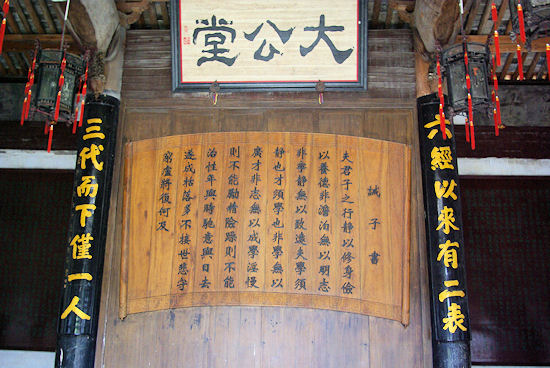 大公堂
六經以來有二表
誡子書
夫君子之行靜以修身儉
以養德非澹泊無以明志
非寧靜無以致遠夫學須
靜也才須學也非學無以
廣才非志無以成學淫慢
則不能勵精險躁則不能
治性年與時馳意與日去
遂成枯落多不接世悲守
窮廬將復何及
三代而下僅一人